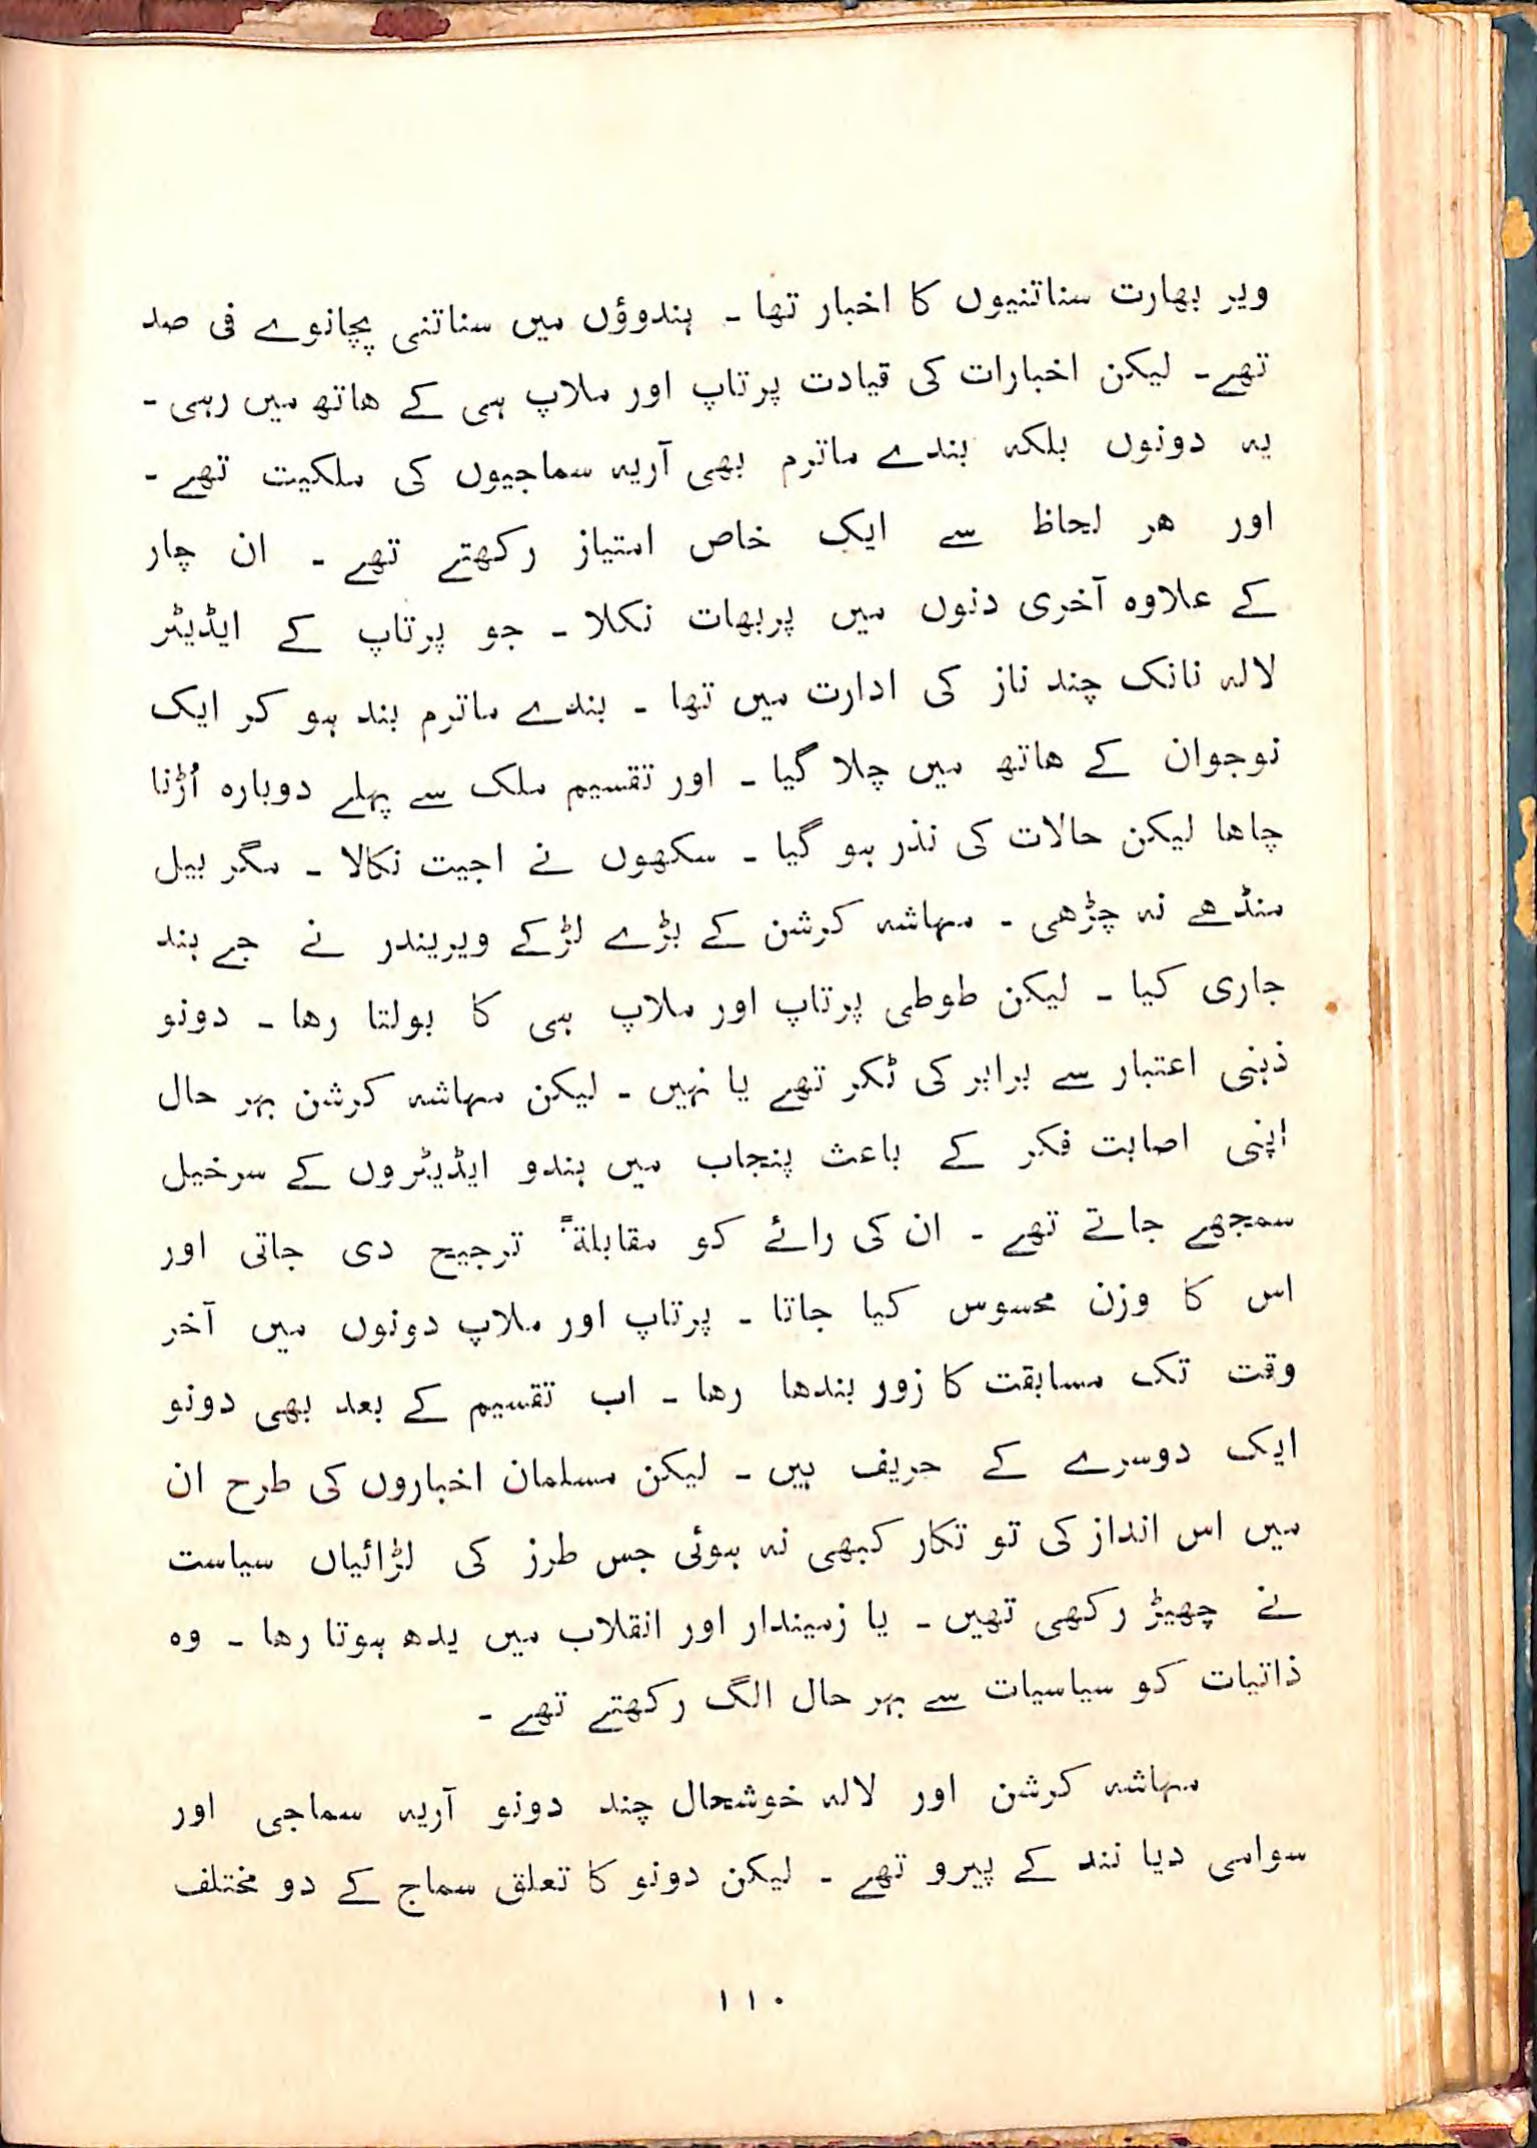 ویر بھارت سناتنیوں کا اخبار تھا ۔ ہندوؤں میں سناتنی پچانوے فی صد
تھے۔ لیکن اخبارات کی قیادت پرتاپ اور ملاپ ہی کے ھاتھ میں رہی ۔
یہ دونوں بلکہ بندے ماترم بھی آریہ سماجیوں کی ملکیت تھے ۔
اور ھر لحاظ سے ایک خاص امتیاز رکھتے تھے ۔ ان چار
کے علاوہ آخری دنوں میں پربھات نکلا ۔ جو پرتاپ کے ایڈیٹر
لالہ نانک چند ناز کی ادارت میں تھا ۔ بندے ماترم بند ہو کر ایک
نوجوان کے ھاتھ میں چلا گیا ۔ اور تقسیم ملک سے پہلے دوبارہ اُڑنا
چاھا لیکن حالات کی نذر ہو گیا ۔ سکھوں نے اجیت نکالا ۔ مگر بیل
منڈھے نہ چڑھی ۔ مہاشہ کرشن کے بڑے لڑکے ویریندر نے جے ہند
جاری کیا ۔ لیکن طوطی پرتاپ اور ملاپ ہی کا بولتا رھا ۔ دونو
ذہنی اعتبار سے برابر کی ٹکر تھے یا نہیں ۔ لیکن مہاشہ کرشن بہر حال
اپنی اصابت فکر کے باعث پنجاب میں ہندو ایڈیٹروں کے سرخیل
سمجھے جاتے تھے ۔ ان کی رائے کو مقابلةً ترجیح دی جاتی اور
اس کا وزن محسوس کیا جاتا ۔ پرتاپ اور ملاپ دونوں میں آخر
وقت تک مسابقت کا زور بندھا رھا ۔ اب تقسیم کے بعد بھی دونو
ایک دوسرے کے حریف ہیں ۔ لیکن مسلمان اخباروں کی طرح ان
میں اس انداز کی تو تکار کبھی نہ ہوئی جس طرز کی لڑائیاں سیاست
نے چھیڑ رکھی تھیں ۔ یا زمیندار اور انقلاب میں یدھ ہوتا رھا ۔ وہ
ذاتیات کو سیاسیات سے بہر حال الگ رکھتے تھے ۔
مہاشہ کرشن اور لالہ خوشحال چند دونو آریہ سماجی اور
سوامی دیا نند کے پیرو تھے ۔ لیکن دونو کا تعلق سماج کے دو مختلف
۱۱۰